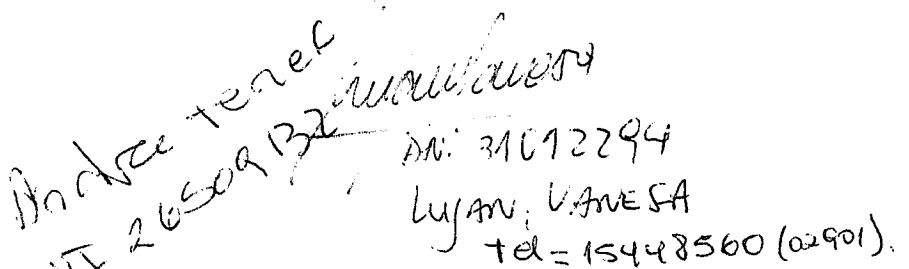 Andrea
DNI 26509132
DNI: 31612294
LUJAN, VANESA
tel = 15448560 (02901).